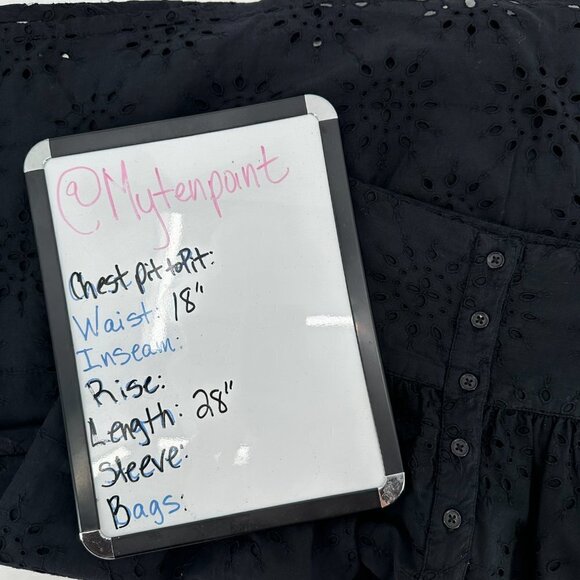 @Mytenpoint
Chest pit to Pit:
Waist: 18"
Inseam:
Rise:
Length: 28"
Sleeve:
Bags: